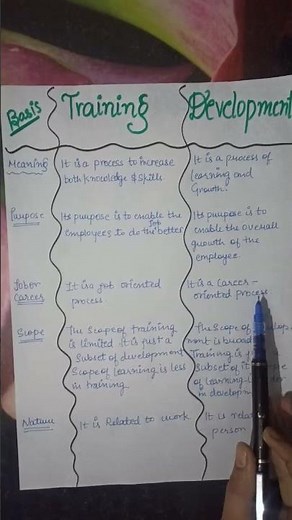 Basis Training Development
Meaning
It is a process to increase
both knowledge & skills
It is a process of
learning and
Growth.
Purpose
Its purpose is to enable the
employees to do the job better
Its purpose is to
enable the overall
growth of the
employee
Job or
Career
It is a job oriented
process
It is a Career -
oriented process
Scope
The Scope of training
is limited it is just a
Subset of development
Scope of learning is less
in training
The Scope of
ment is broad
Training is
Subset of it
of learning
in develop
Nature
It is Related to work
It is
person